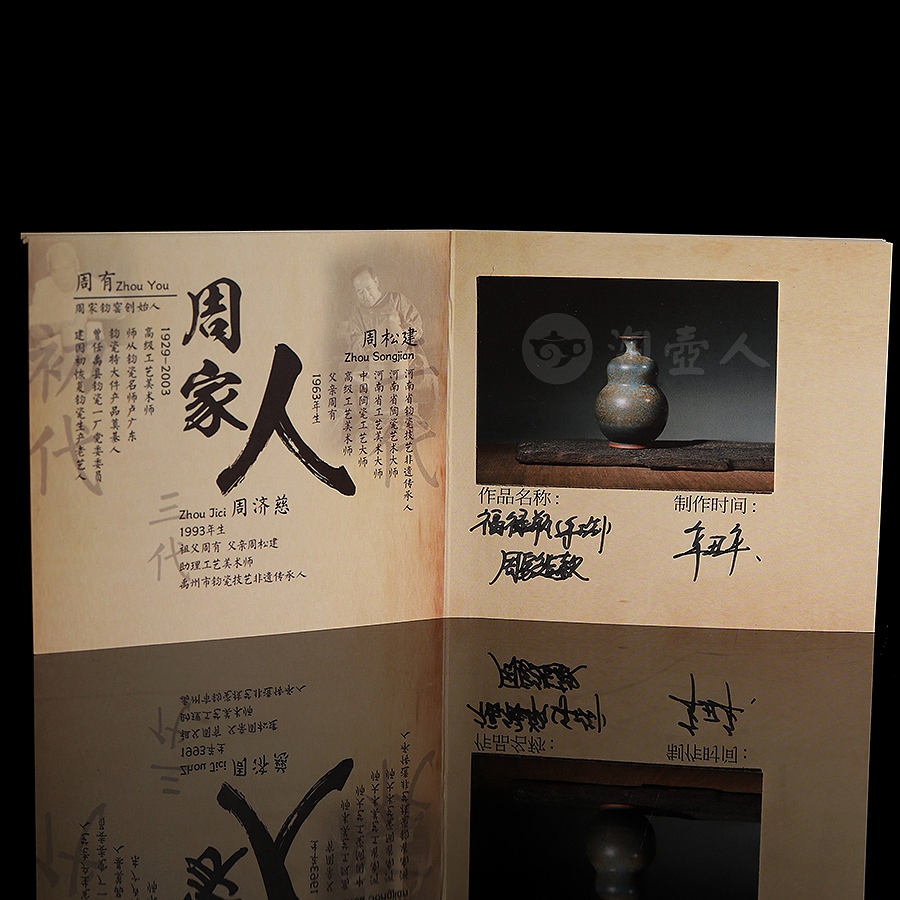 周有 Zhou You
周家钧窑创始人
1929-2003
高级工艺美术师
师从钧瓷名师卢广东
钧瓷特大件产品奠基人
曾任禹县钧瓷一厂党委委员
建国初恢复钧瓷生产老艺人
初代
周家人
周松建
Zhou Songjian
河南省钧瓷技艺非遗传承人
河南省陶瓷艺术大师
河南省工艺美术大师
中国陶瓷工艺大师
高级工艺美术师
父亲周有
1963年生
三代
Zhou Jici 周济慈
1993年生
祖父周有 父亲周松建
助理工艺美术师
禹州市钧瓷技艺非遗传承人
淘壶人
作品名称:
福禄瓶(手拉)
制作时间:
辛丑年、